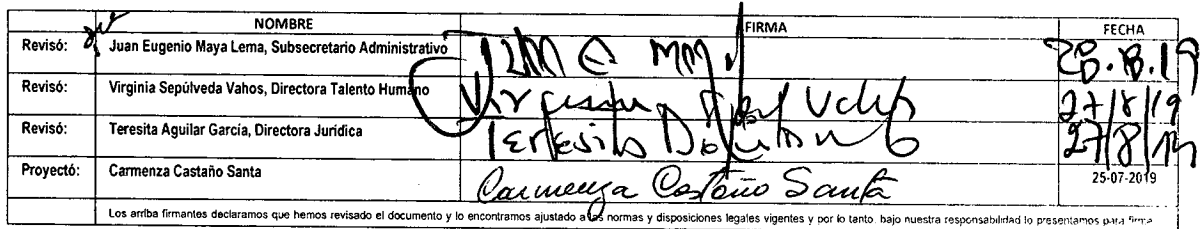 NOMBRE FIRMA FECHA
Revisó: Juan Eugenio Maya Lema, Subsecretario Administrativo 28.8.19
Revisó: Virginia Sepúlveda Vahos, Directora Talento Humano 27/8/19
Revisó: Teresita Aguilar García, Directora Jurídica Teresita 27/8/19
Proyectó: Carmenza Castaño Santa Carmenza Castaño Santa 25-07-2019
Los arriba firmantes declaramos que hemos revisado el documento y lo encontramos ajustado a las normas y disposiciones legales vigentes y por lo tanto, bajo nuestra responsabilidad lo presentamos para firma